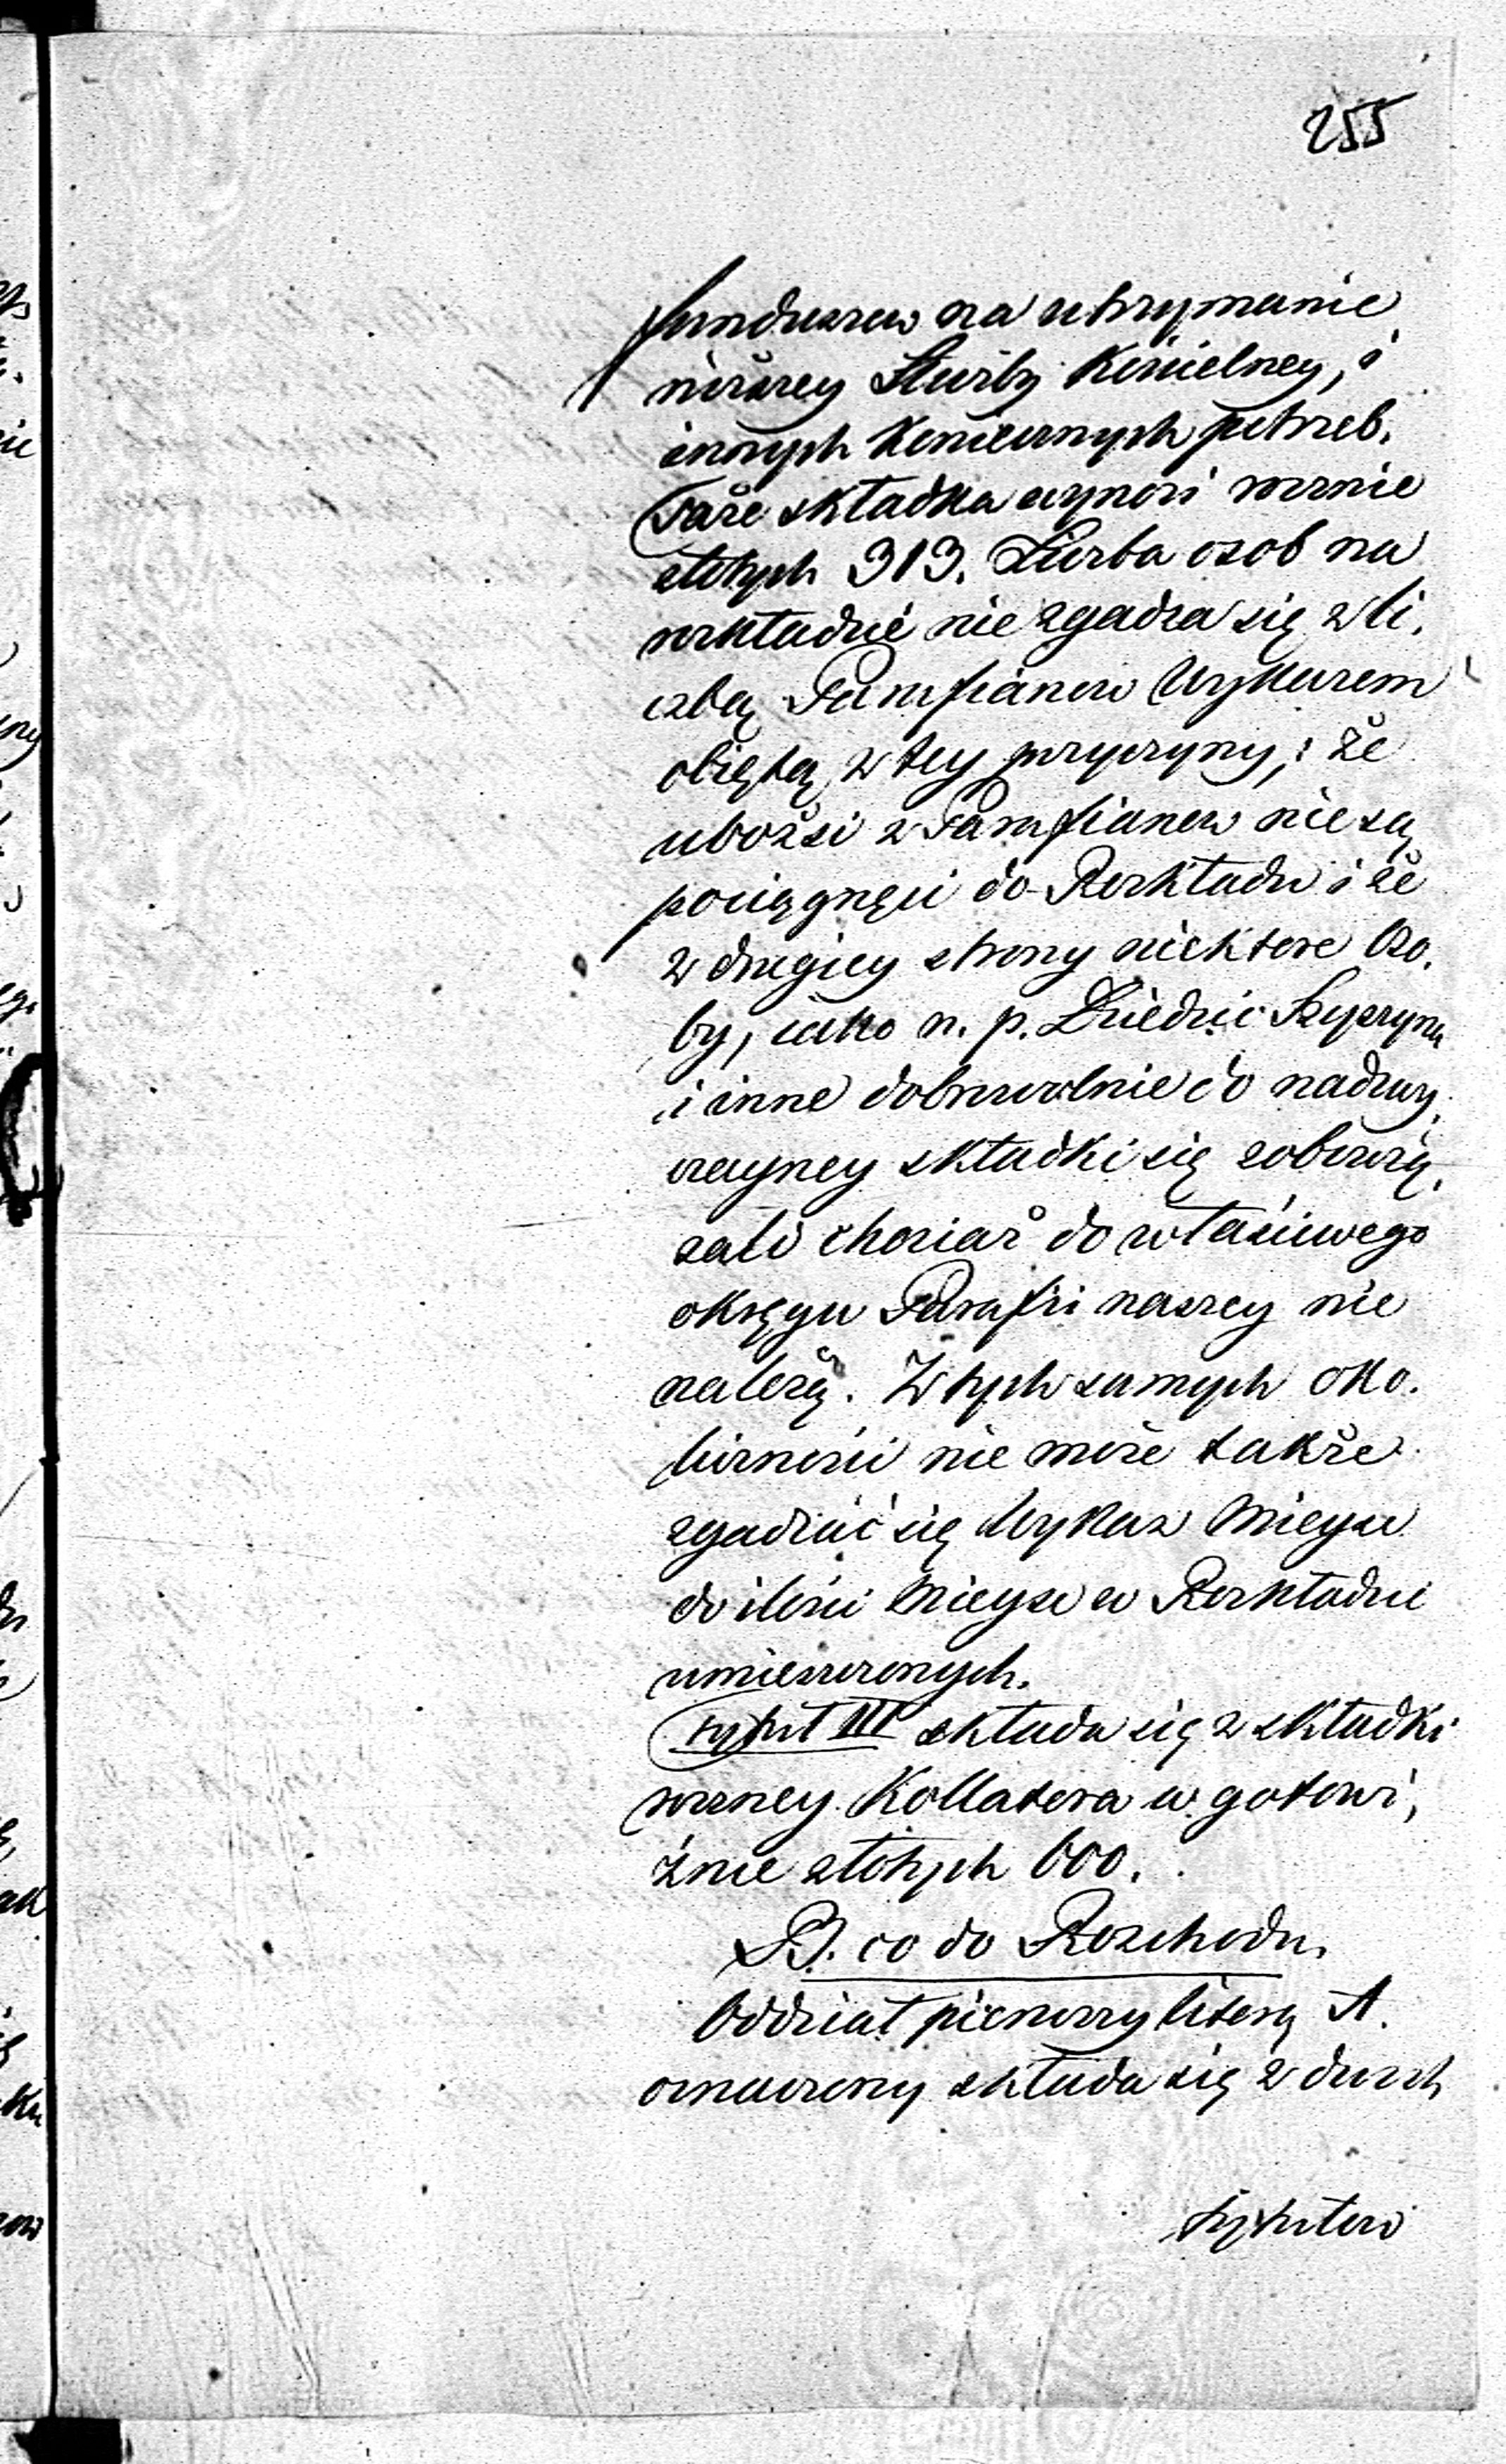 255
funduszów na utrzymanie
niższey Służby Kościelney, i
innych Koniecznych potrzeb.
Taże składka wynosi rocznie
złotych 313. Liczba osob na
rozkładzie nie zgadza się z li,
czbą Parafianow Wykazem
obiętą, z tey przyczyny, że
ubożsi z Parafianow nie są
pociągnęci do Rozkładu i że
z drugiey strony niektore Oso,
by, iako n. p. Dziedzic
i inne dobrowolnie do nadzwy,
czayney składki się zobowią,
zali chociaż do właściwego
okręgu Parafii naszey nie
należą. W tych samych oko,
licznosci nie może także
zgadzać się Wykaz Mieysc
do ilości Mieysc w Rozkładzie
umieszczonych.
Tytuł III składa się z składki
roczney Kollatora w gotowi,
źnie złotych 600.
B. co do Rozchodu.
Oddział pierwszy literą A.
oznaczony składa się z dwóch
tytułow